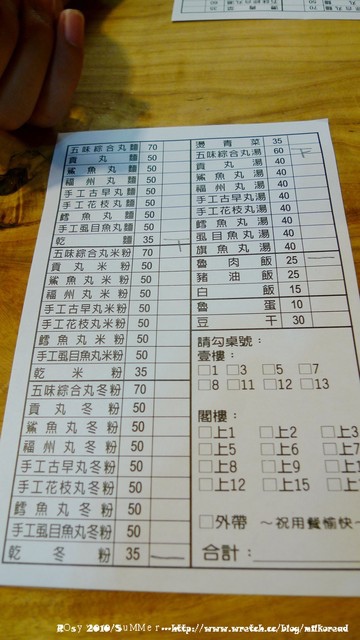 五味綜合丸麵 70
貢丸麵 50
鯊魚丸麵 50
福州丸麵 50
手工古早丸麵 50
手工花枝丸麵 50
鱈魚丸麵 50
手工虱目魚丸麵 50
乾麵 35
五味綜合丸米粉 70
貢丸米粉 50
鯊魚丸米粉 50
福州丸米粉 50
手工古早丸米粉 50
手工花枝丸米粉 50
鱈魚丸米粉 50
手工虱目魚丸米粉 50
乾米粉 35
五味綜合丸冬粉 70
貢丸冬粉 50
鯊魚丸冬粉 50
福州丸冬粉 50
手工古早丸冬粉 50
手工花枝丸冬粉 50
鱈魚丸冬粉 50
手工虱目魚丸冬粉 50
乾冬粉 35
燙青菜 35
五味綜合丸湯 60
貢丸湯 40
鯊魚丸湯 40
福州丸湯 40
手工古早丸湯 40
手工花枝丸湯 40
鱈魚丸湯 40
虱目魚丸湯 40
旗魚丸湯 40
魯肉飯 25
豬油飯 25
白飯 15
魯蛋 10
豆干 30
請勾桌號：
壹樓：
□1 □3 □5 □7
□8 □11 □12 □13
閣樓：
□上1 □上2 □上3
□上5 □上6 □上7
□上8 □上9 □上1
□上12 □上15 □上1
□外帶 ～祝用餐愉快～
合計：
ROsy 2010/SuMMer...http://www.wretch.cc/blog/milkoread